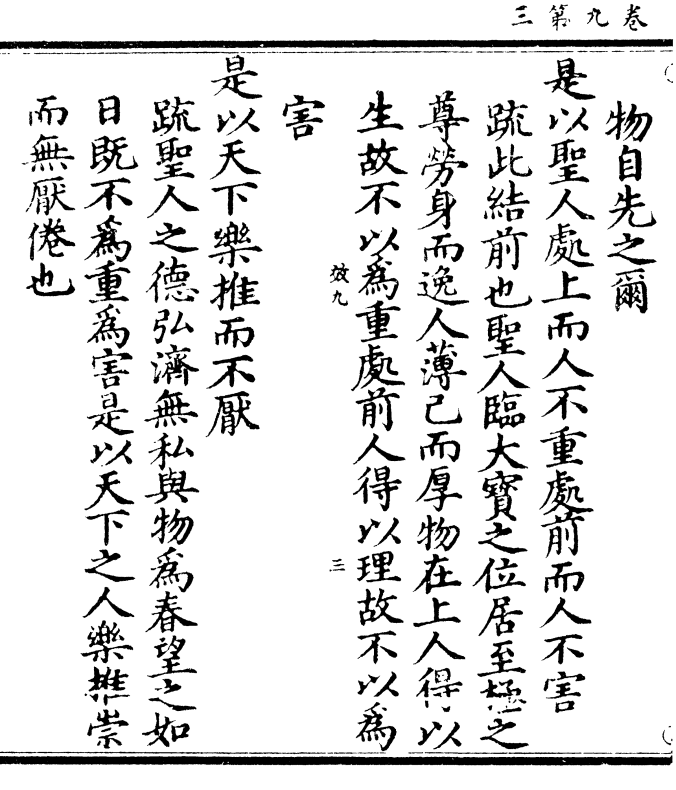 卷九第三
物自先之爾
是以聖人處上而人不重處前而人不害
疏此結前也聖人臨大寶之位居至極之
尊勞身而逸人薄己而厚物在上人得以
生故不以為重處前人得以理故不以為
效九
三
害
是以天下樂推而不厭
疏聖人之德弘濟無私與物為春望之如
日既不為重為害是以天下之人樂推崇
而無厭倦也